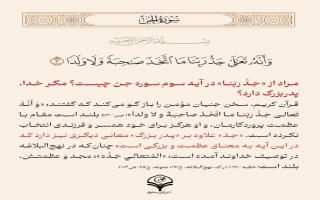 سورة الجن
وَأَنَّهُ تَعَالَىٰ جَدُّ رَبِّنَا مَا اتَّخَذَ صَاحِبَةً وَلَا وَلَدًا ﴿۳﴾
مراد از «جَدُّ رَبِّنا» در آیه سوم سوره جن چیست؟ مگر خدا،
پدربزرگ دارد؟
قرآن کریم، سخن جنیان مؤمن را بازگو می‌کند که گفتند: «وَ أَنَّهُ
تَعالی جَدُّ رَبِّنا مَا اتَّخَذَ صاحِبَةً وَ لا وَلَداً» بلند است مقام با
عظمت پروردگارمان، و او هرگز برای خود همسر و فرزندی انتخاب
نکرده است. «جد» علاوه بر «پدربزرگ» معنای دیگری نیز دارد که
در این آیه به معنای عظمت و بزرگی است؛ چنان‌که در نهج‌البلاغه
در توصیف خداوند آمده است: «المُتَعالی جَدُّهُ»؛ مجد و عظمتش،
بلند است؛